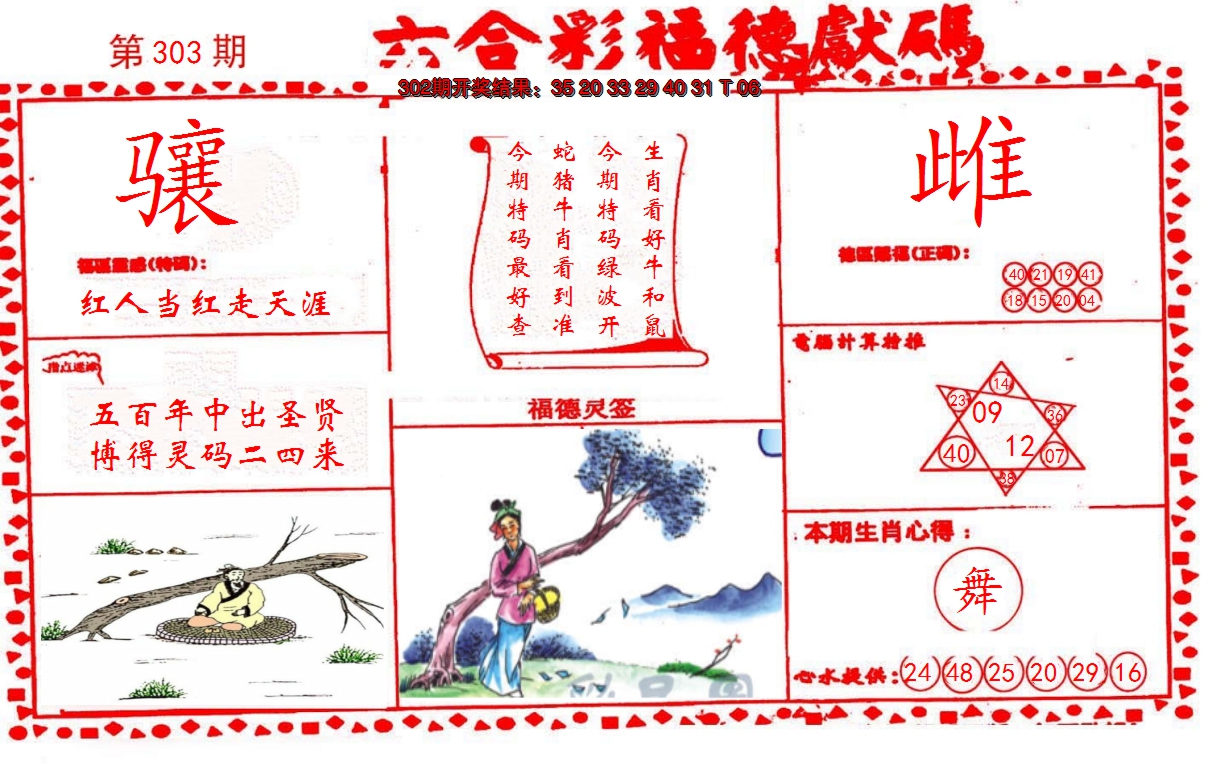 第 303 期
六合彩福德獻碼
302期开奖结果：35 20 33 29 40 31 T 06
骧
福區靈感(特碼)：
红人当红走天涯
指点迷津
五百年中出圣贤
博得灵码二四来
生肖看好牛和鼠
今期特码绿波开
蛇猪牛肖看到准
今期特码最好查
福德灵签
雌
德區賜福(正碼)：
40 21 19 41
18 15 20 04
電腦計算推
14
23 09 36
40 12 07
38
本期生肖心得：
舞
心水提供：24 48 25 20 29 16